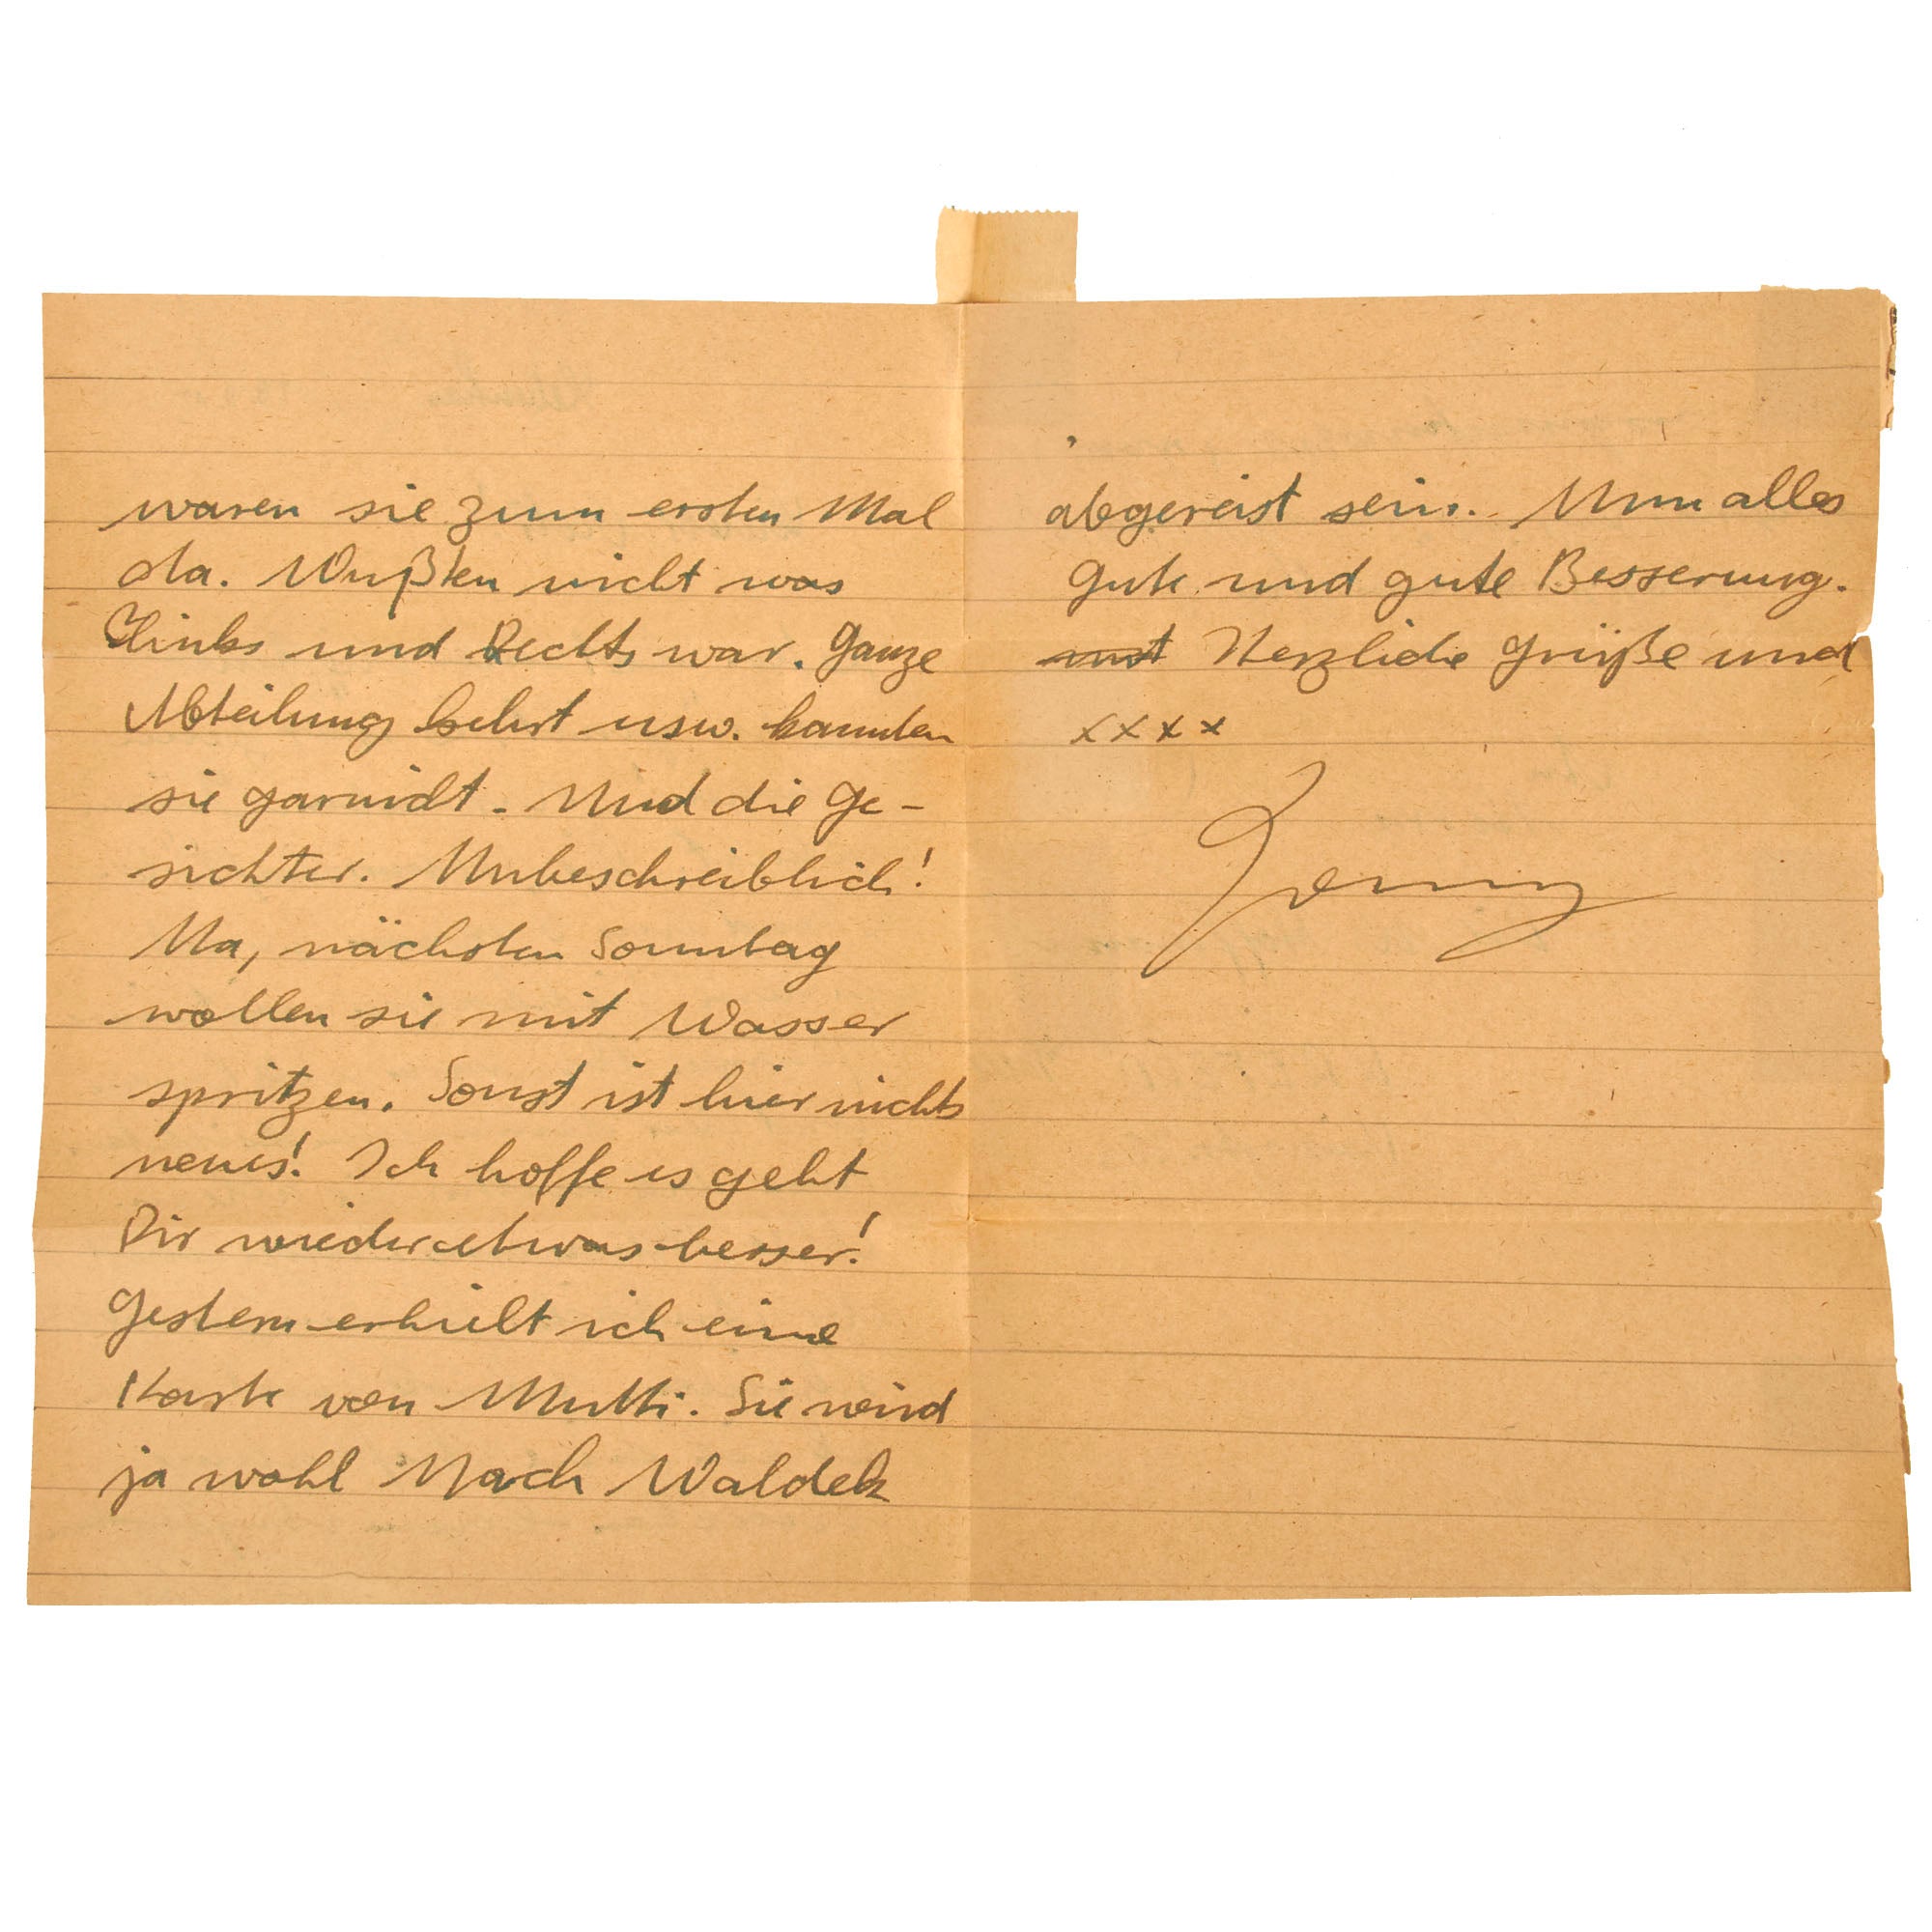 waren sie zum ersten Mal
da. Wußten nicht was
Links und Rechts war. Ganze
Abteilung kehrt usw. kannten
sie garnicht. Und die Ge-
sichter. Unbeschreiblich!
Na, nächsten Sonntag
wollen sie mit Wasser
spritzen. Sonst ist hier nichts
neues! Ich hoffe es geht
Dir wieder etwas besser!
Gestern erhielt ich eine
Karte von Mutti. Sie wird
ja wohl Nach Waldek
abgereist sein. Nun alles
gute und gute Besserung.
Herzliche Grüße und
xxxx